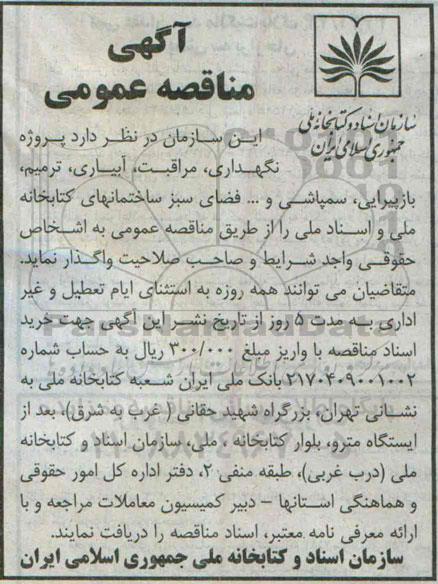 آگهی
مناقصه عمومی
سازمان اسناد و کتابخانه ملی
جمهوری اسلامی ایران
این سازمان در نظر دارد پروژه
نگهداری، مراقبت، آبیاری، ترمیم،
بازپیرایی، سمپاشی و ... فضای سبز ساختمانهای کتابخانه
ملی و اسناد ملی را از طریق مناقصه عمومی به اشخاص
حقوقی واجد شرایط و صاحب صلاحیت واگذار نماید.
متقاضیان می توانند همه روزه به استثنای ایام تعطیل و غیر
اداری به مدت ۵ روز از تاریخ نشر این آگهی جهت خرید
اسناد مناقصه با واریز مبلغ ۳۰۰/۰۰۰ ریال به حساب شماره
۲۱۷۰۴۰۹۰۰۱۰۰۲ بانک ملی ایران شعبه کتابخانه ملی به
نشانی تهران، بزرگراه شهید حقانی (غرب به شرق)، بعد از
ایستگاه مترو، بلوار کتابخانه ، ملی، سازمان اسناد و کتابخانه
ملی (درب غربی)، طبقه منفی ۲، دفتر اداره کل امور حقوقی
و هماهنگی استانها – دبیر کمیسیون معاملات مراجعه و با
ارائه معرفی نامه معتبر، اسناد مناقصه را دریافت نمایند.
سازمان اسناد و کتابخانه ملی جمهوری اسلامی ایران